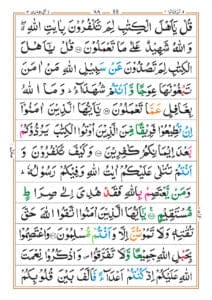 قُلْ يٰۤاَهْلَ الْكِتٰبِ لِمَ تَكْفُرُوْنَ بِاٰيٰتِ اللّٰهِ ۖ
وَاللّٰهُ شَهِيْدٌ عَلٰى مَا تَعْمَلُوْنَ قُلْ يٰۤاَهْلَ
الْكِتٰبِ لِمَ تَصُدُّوْنَ عَنْ سَبِيْلِ اللّٰهِ مَنْ اٰمَنَ
تَبْغُوْنَهَا عِوَجًا وَّاَنْتُمْ شُهَدَآءُ ؕ وَمَا اللّٰهُ
بِغَافِلٍ عَمَّا تَعْمَلُوْنَ يٰۤاَيُّهَا الَّذِيْنَ اٰمَنُوْۤا
اِنْ تُطِيْعُوْا فَرِيْقًا مِّنَ الَّذِيْنَ اُوْتُوا الْكِتٰبَ يَرُدُّوْكُمْ
بَعْدَ اِيْمَانِكُمْ كٰفِرِيْنَ وَكَيْفَ تَكْفُرُوْنَ وَ
اَنْتُمْ تُتْلٰى عَلَيْكُمْ اٰيٰتُ اللّٰهِ وَفِيْكُمْ رَسُوْلُهٗ ؕ
وَمَنْ يَّعْتَصِمْ بِاللّٰهِ فَقَدْ هُدِيَ اِلٰى صِرَاطٍ
مُّسْتَقِيْمٍ يٰۤاَيُّهَا الَّذِيْنَ اٰمَنُوا اتَّقُوا اللّٰهَ حَقَّ
تُقٰتِهٖ وَلَا تَمُوْتُنَّ اِلَّا وَاَنْتُمْ مُّسْلِمُوْنَ وَاعْتَصِمُوْا
بِحَبْلِ اللّٰهِ جَمِيْعًا وَّلَا تَفَرَّقُوْا ۪ وَاذْكُرُوْا نِعْمَتَ
اللّٰهِ عَلَيْكُمْ اِذْ كُنْتُمْ اَعْدَآءً فَاَلَّفَ بَيْنَ قُلُوْبِكُمْ